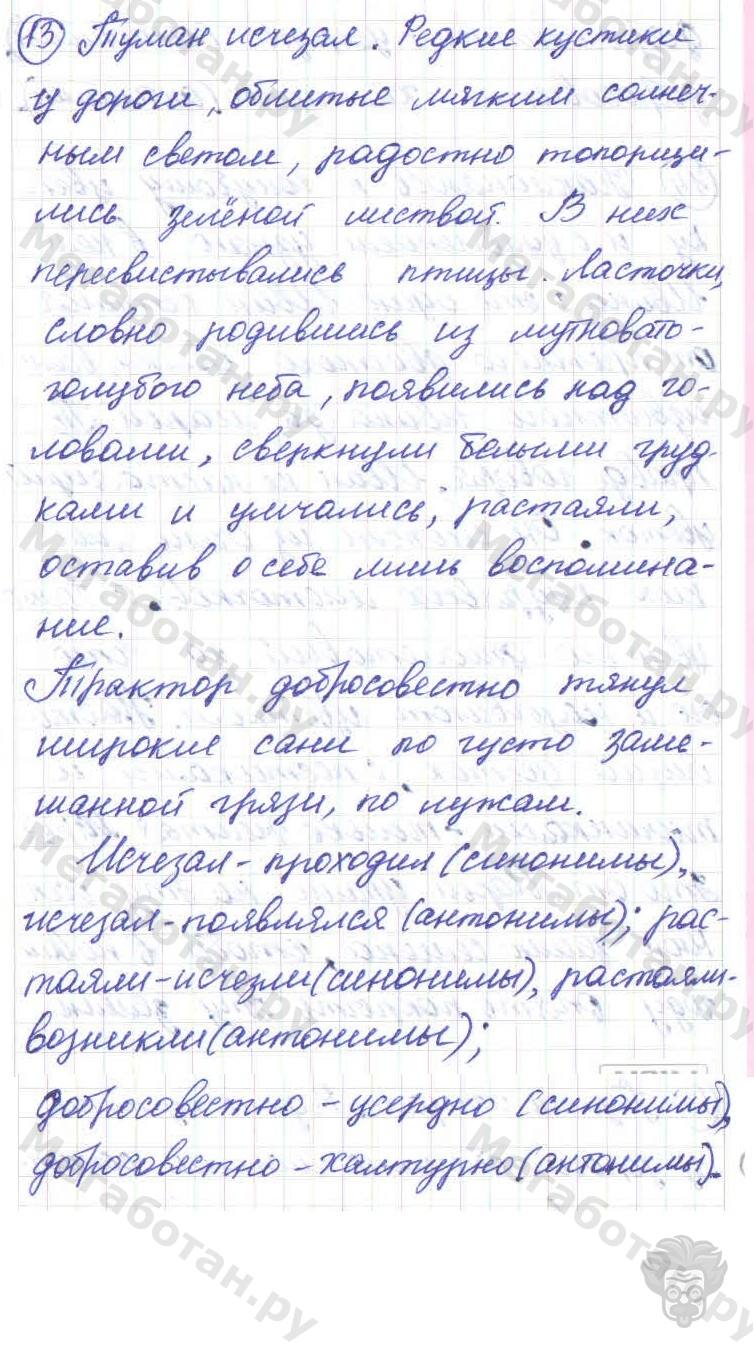 13 Туман исчезал. Редкие кустики
у дороги, облитые мягким солнеч-
ным светом, радостно топорщи-
лись зелёной листвой. В них
пересвистывались птицы. Ласточки,
словно родившись из мутновато-
голубого неба, появились над го-
ловами, сверкнули белыми груд-
ками и умчались, растаяли,
оставив о себе лишь воспомина-
ние.
Трактор добросовестно тянул
широкие сани по густо заме-
шанной грязи, по лужам.
Исчезал - проходил (синонимы),
исчезал - появлялся (антонимы); рас-
таяли - исчезли (синонимы), растаяли -
возникли (антонимы);
добросовестно - усердно (синонимы),
добросовестно - халтурно (антонимы).
Мегаботан.ру